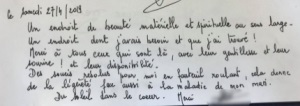 Le samedi 27/4/2019
Un endroit de beauté matérielle et spirituelle au sens large.
Un endroit dont j'avais besoin et que j'ai trouvé !
Merci à tous ceux qui sont là, avec leur gentillesse et leur
sourire ! et leur disponibilité.
Des soucis résolus pour moi en fauteuil roulant, cela donne
de la légèreté face aussi à la maladie de mon mari.
Du soleil dans le cœur. Merci